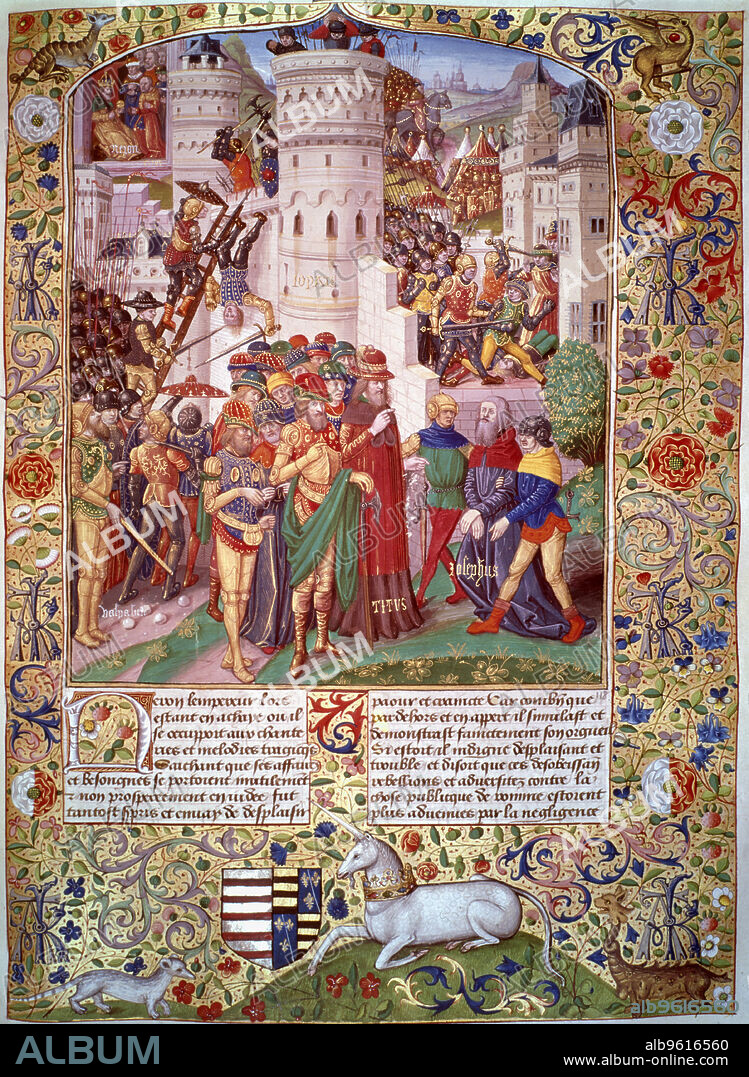 Neron
Iopata
TITUS
Josephus
Neron lempereur lors
estant en achaye ou il
se occupoit aux chante
ries et melodies tragiques
Saichant que ses affaires
et besongnes se portoient inutilement
non prosperement en iudee fut
tantost espris et enuay de desplaisir
paour et anxiete Car combien que
par dehors et en appert il simulast et
demonstrast faintement son orgueil
Si estoit il indigne desplaisant et
trouble et disoit que ces desobeissan
rebellions et aduersitez contre la
chose publique de romme estoient
plus aduenues par la negligence
ALBUM
alb9616560
ALBUM
alb9616560
www.album-online.com